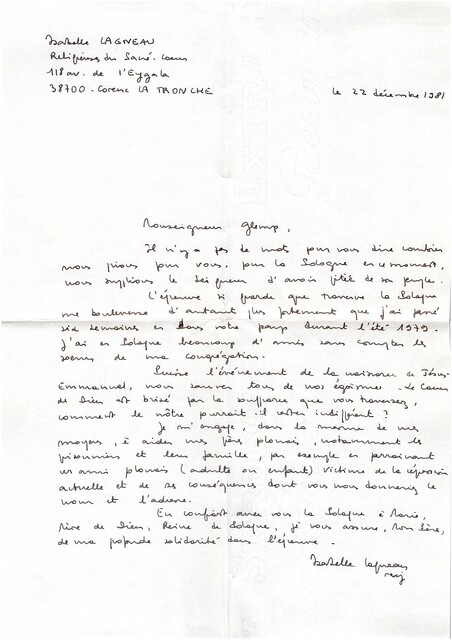 Isabelle LAGNEAU
Religieuses du Sacré-Coeur
118 av. de l'Eygala
38700 - Corenc LA TRONCHE
le 22 décembre 1981
Monseigneur Glemp,
Il n'y a pas de mots pour vous dire combien
nous prions pour vous, pour la Pologne en ce moment,
nous supplions le Seigneur d'avoir pitié de son peuple.
L'épreuve si grande que traverse la Pologne
me bouleverse d'autant plus fortement que j'ai passé
six semaines en dans votre pays durant l'été 1979.
J'ai en Pologne beaucoup d'amis sans compter les
soeurs de ma congrégation.
Puisse l'événement de la naissance de Jésus-
Emmanuel, nous sauver tous de nos égoïsmes - Le Coeur
de Dieu est brisé par la souffrance que vous traversez,
comment le nôtre pourrait-il rester indifférent ?
Je m'engage, dans la mesure de mes
moyens, à aider mes frères polonais, notamment les
prisonniers et leur famille, par exemple en parrainant
un ami polonais (adulte ou enfant) victime de la répression
actuelle et de ses conséquences dont vous nous donnerez le
nom et l'adresse.
En confiant avec vous la Pologne à Marie,
Mère de Dieu, Reine de Pologne, je vous assure, Mon Père,
de ma profonde solidarité dans l'épreuve.
Isabelle Lagneau
rscj